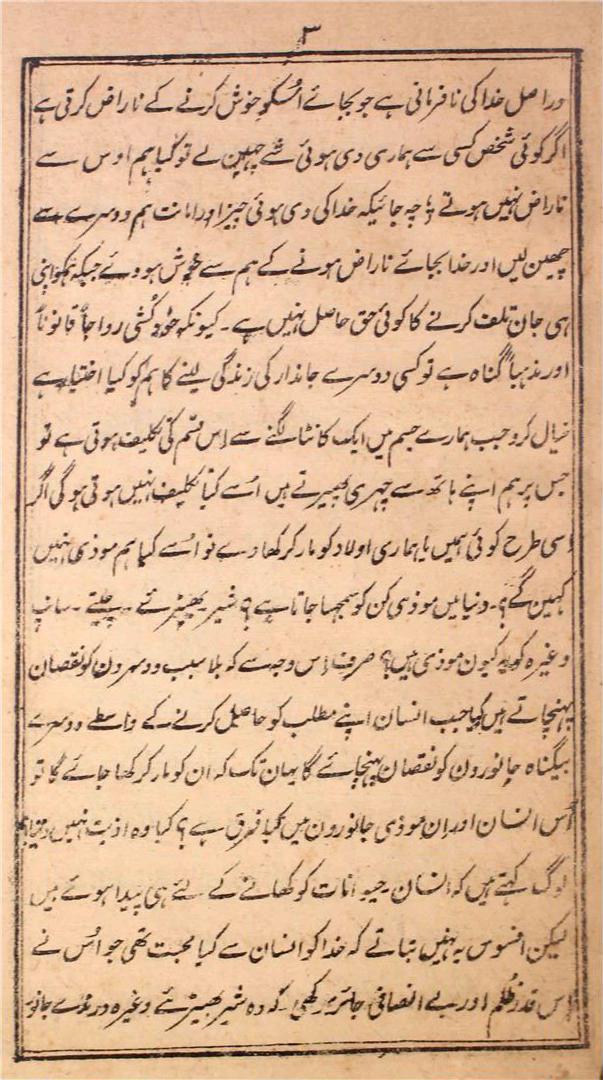 ۳
دراصل خدا کی نافرمانی ہے جو بجائے اُسکو خوش کرنے کے ناراض کرتی ہے
اگر کوئی شخص کسی سے ہماری دی ہوئی شے چھین لے تو کیا ہم اوس سے
ناراض نہیں ہوتے؟ چہ جائیکہ خدا کی دی ہوئی چیز اور امانت ہم دوسرے سے
چھین لیں اور خدا بجائے ناراض ہونے کے ہم سے خوش ہووے جبکہ ہمکو اپنی
ہی جان تلف کرنے کا کوئی حق حاصل نہیں ہے۔ کیونکہ خودکُشی رواجاً قانوناً
اور مذہباً گناہ ہے تو کسی دوسرے جاندار کی زندگی لینے کا ہم کو کیا اختیار ہے
خیال کرو جب ہمارے جسم میں ایک کانٹا لگنے سے اِس قسم کی تکلیف ہوتی ہے تو
جس پر ہم اپنے ہاتھ سے چہری پھیرتے ہیں اُسے کیا تکلیف نہیں ہوتی ہوگی اگر
اسی طرح کوئی ہمیں یا ہماری اولاد کو مار کر کھاوے تو اُسے کیا ہم موذی نہیں
کہیں گے؟۔ دنیا میں موذی کن کو سمجہا جاتا ہے؟ شیر۔ بھیڑئے۔ چیتے۔ سانپ
وغیرہ کو یہ کیون موذی ہیں؟ صرف اِس وجہ سے کہ بلا سبب دوسرون کو نقصان
پہنچاتے ہیں کیا جب انسان اپنے مطلب کو حاصل کرنے کے واسطے دوسرے
بیگناہ جانورون کو نقصان پہنچائے گا یہان تک کہ ان کو مار کر کھا جائے گا تو
اُس انسان اور اِن موذی جانورون میں کیا فرق ہے؟ کیا وہ اذیت نہیں دیتا؟
لوگ کہتے ہیں کہ انسان حیوانات کو کھانے کے لئے ہی پیدا ہوئے ہیں
لیکن افسوس یہ نہیں بتاتے کہ خدا کو انسان سے کیا محبت تھی جو اُس نے
اِس قدر ظلم اور بے انصافی جائز رکھی۔ کہ وہ شیر بھیڑئے وغیرہ درندے جانور